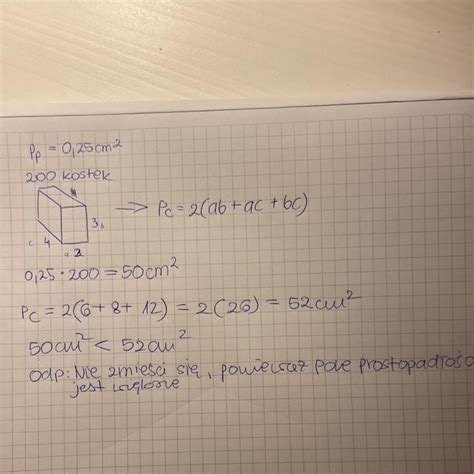 Pp = 0,25cm²
200 kostek
c 4 a 2 3 b → Pc = 2(ab + ac + bc)
0,25 · 200 = 50cm²
Pc = 2(6 + 8 + 12) = 2(26) = 52cm²
50cm² < 52cm²
Odp: Nie zmieści się, ponieważ pole prostopadłośc
jest